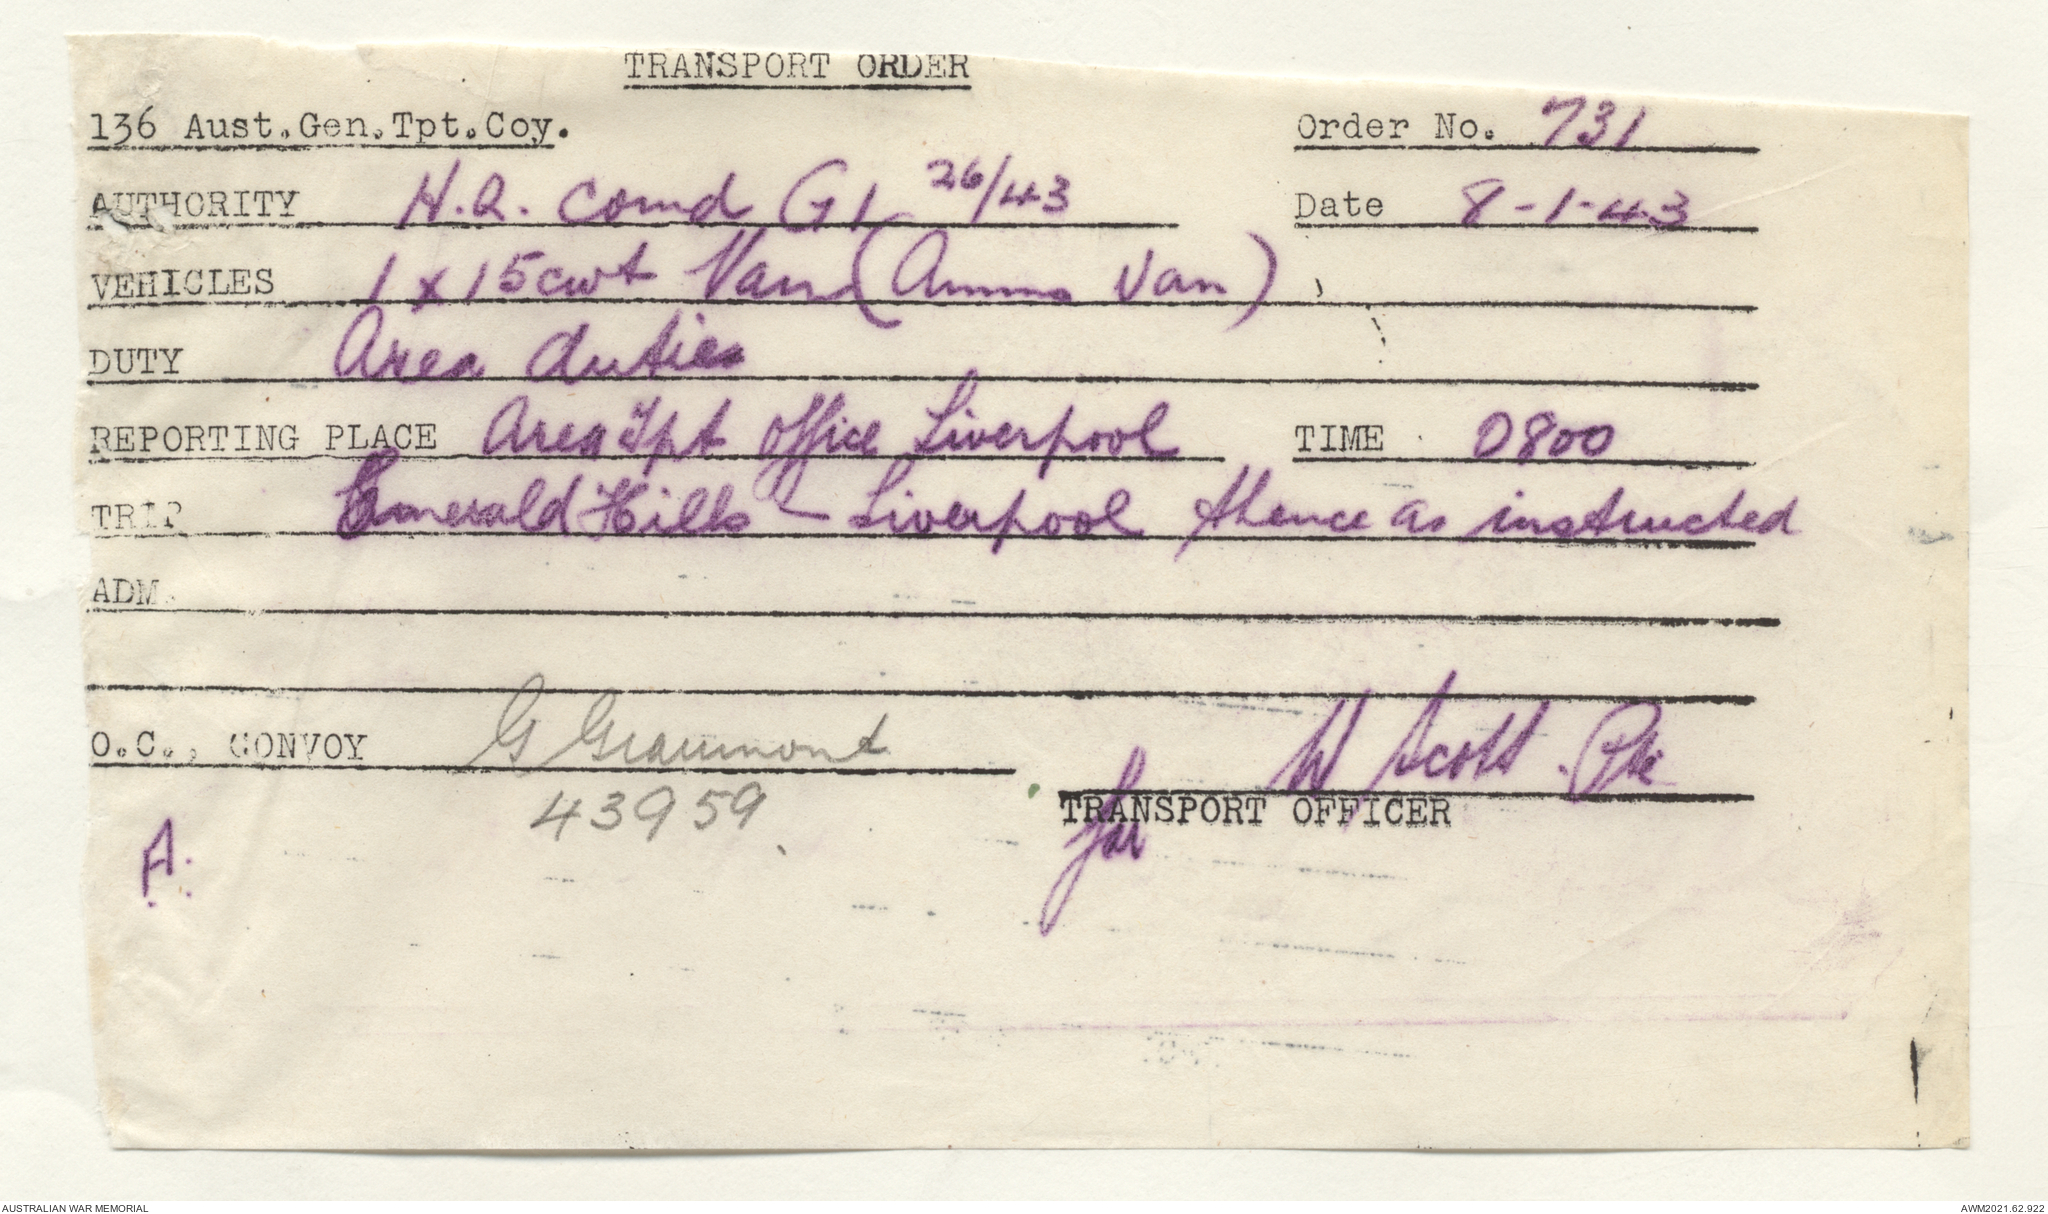 TRANSPORT ORDER
136 Aust.Gen.Tpt.Coy. Order No. 731
AUTHORITY H.Q. Comd G1 26/43 Date 8-1-43
VEHICLES 1 x 15cwt Van (Ammo Van)
DUTY Area duties
REPORTING PLACE Area Tpt Office Liverpool TIME 0800
TRIP Emerald Hills - Liverpool thence as instructed
ADM.
O.C., CONVOY G Grammont W Scott. Pte
43959 for TRANSPORT OFFICER
A.
AUSTRALIAN WAR MEMORIAL AWM2021.62.922